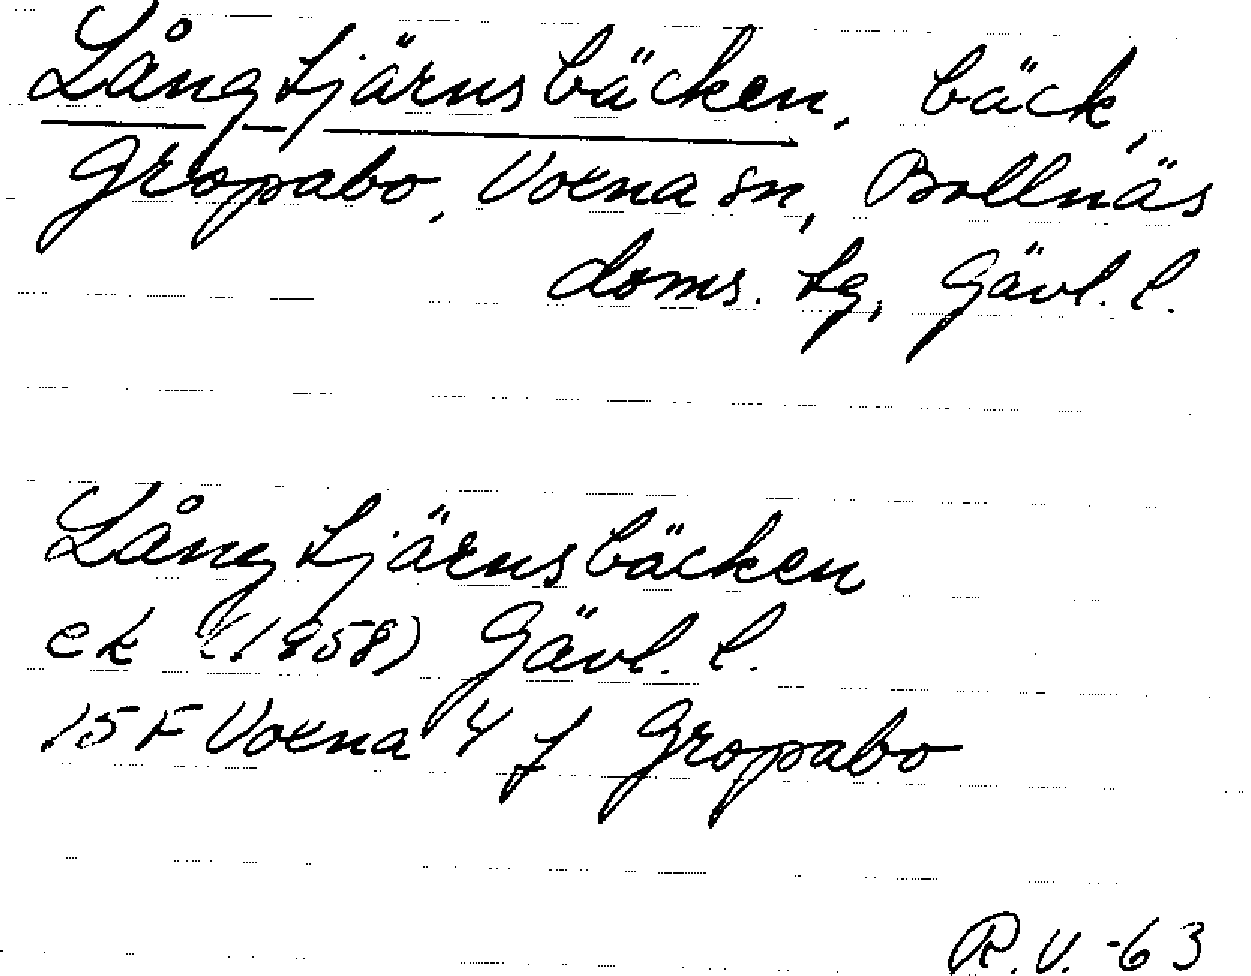 Långtjärnsbäcken, bäck,
Gropabo, Voxna sn, Bollnäs
doms. tg, Gävl. l.
Långtjärnsbäcken
ek (1958) Gävl. l.
15 F Voxna 4 f Gropabo
R.V. -63